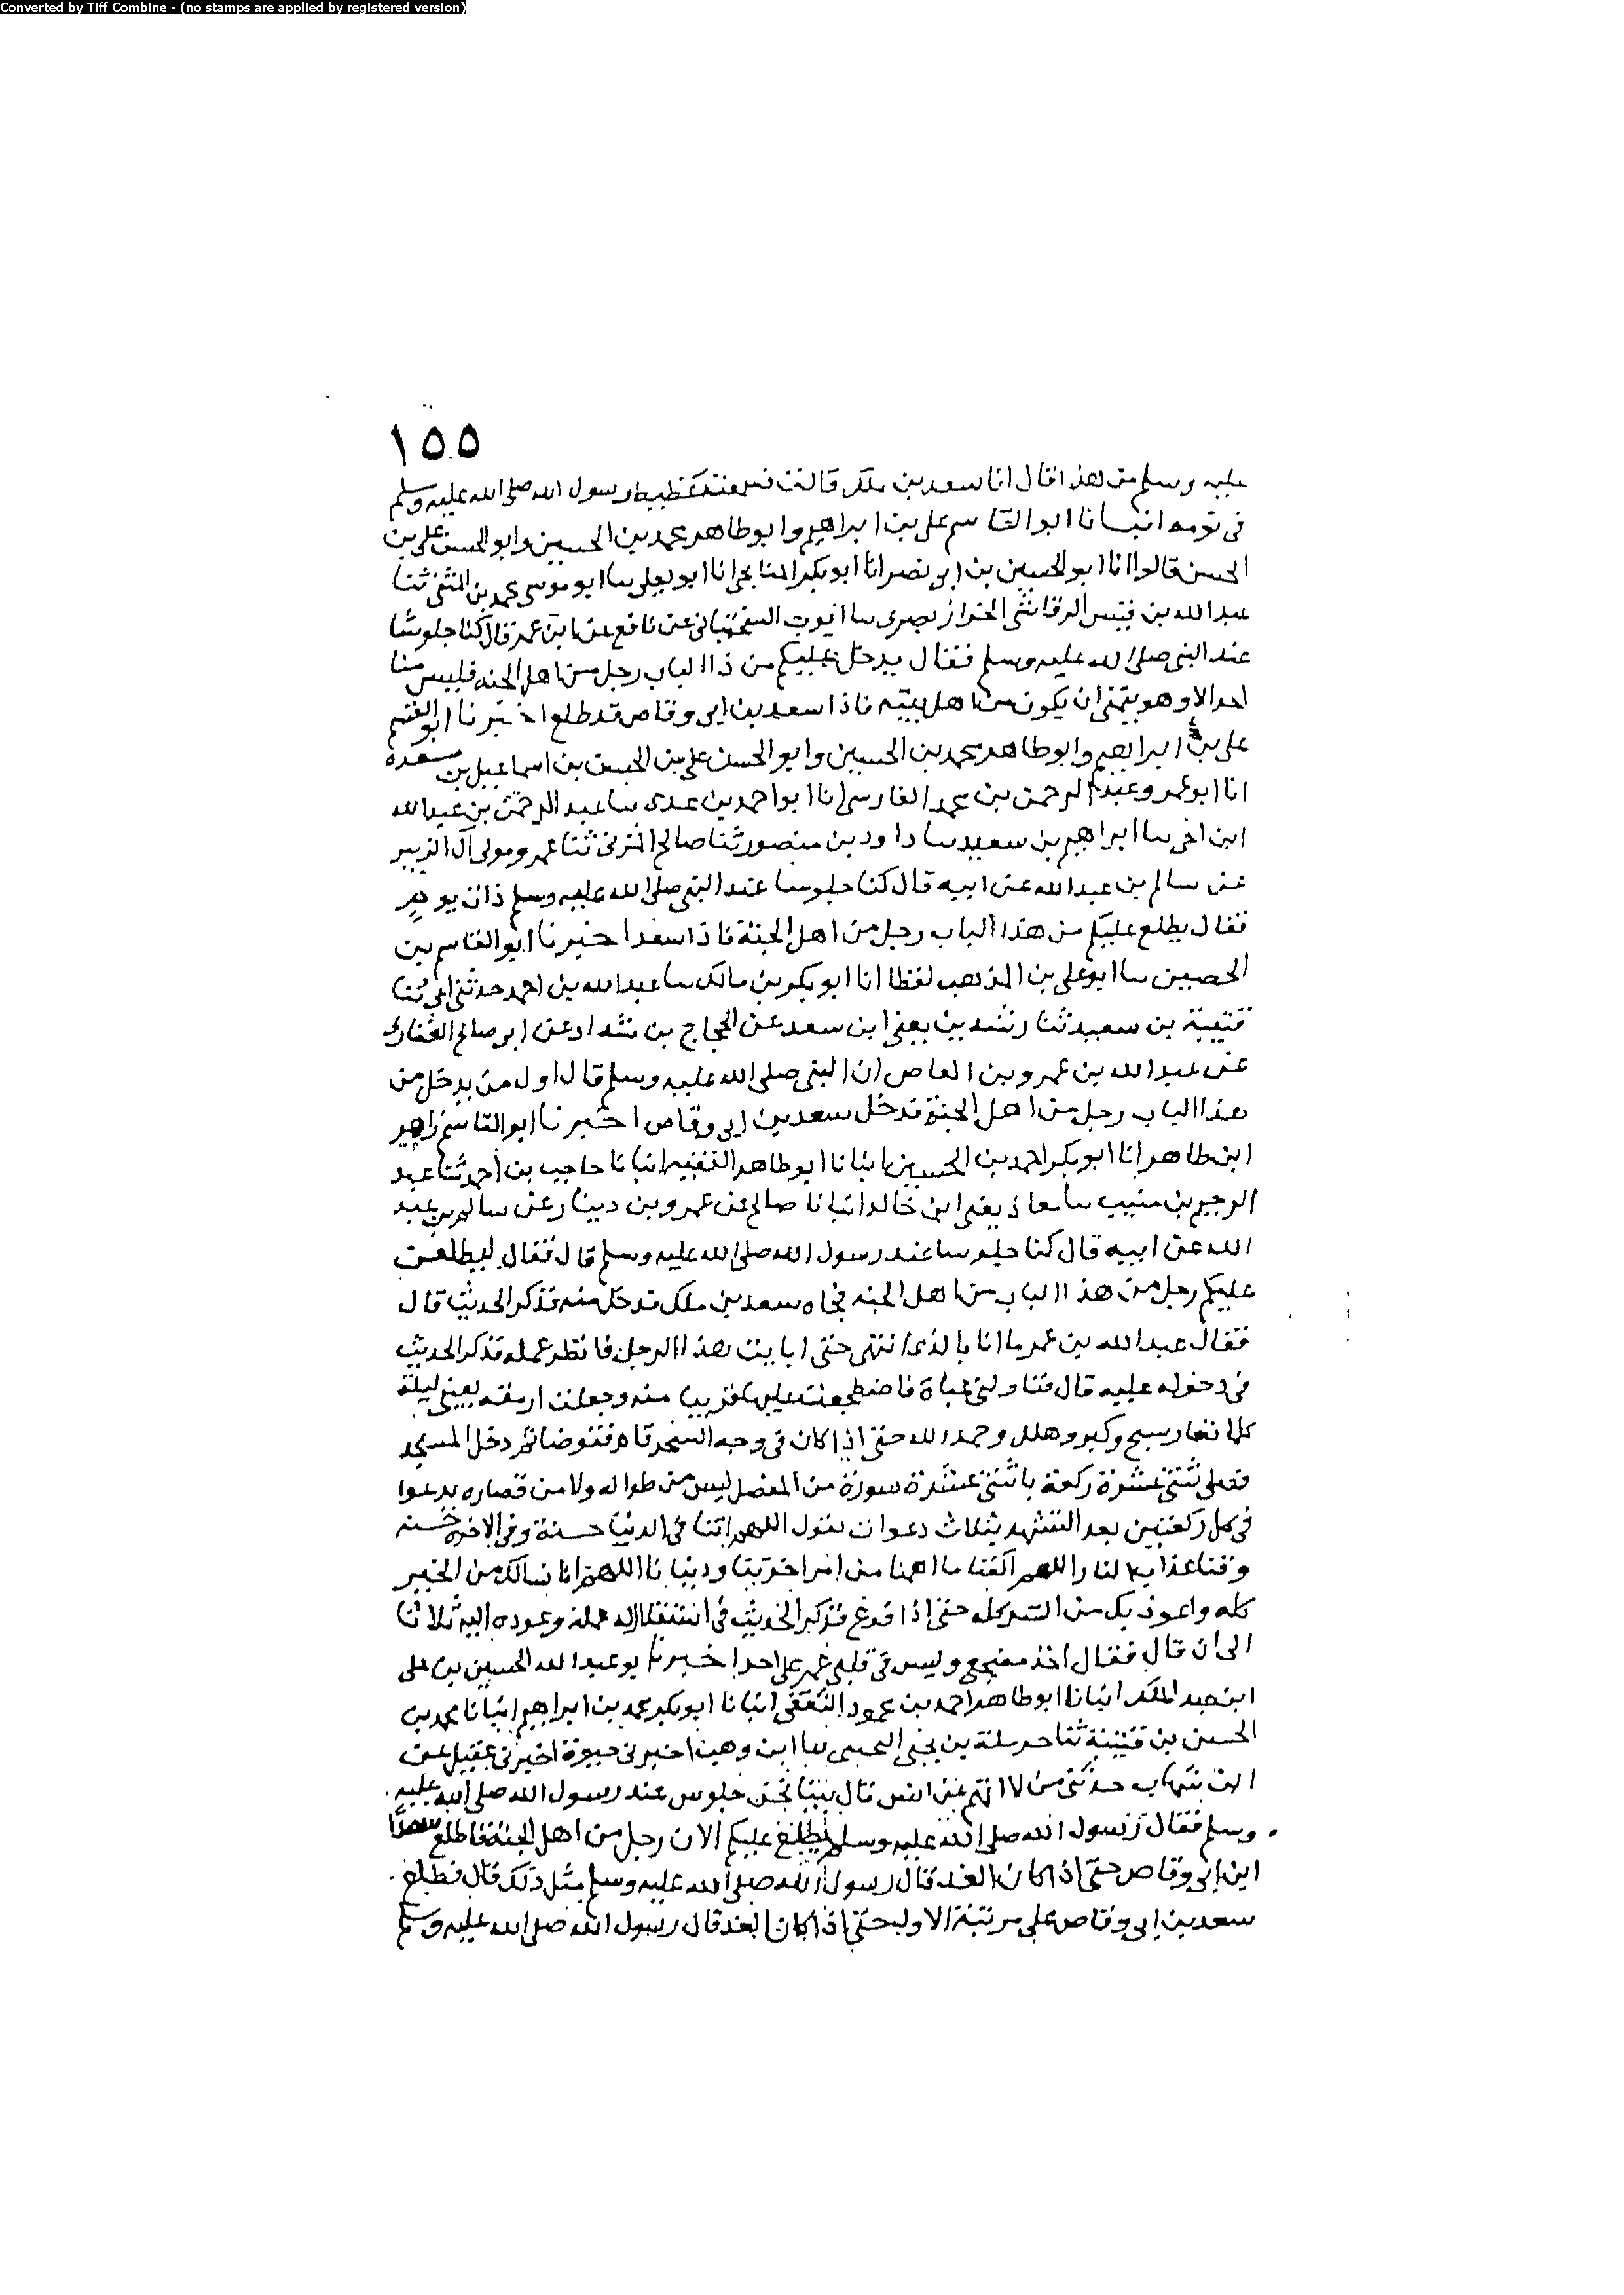 Converted by Tiff Combine - (no stamps are applied by registered version)
١٥٥
عليه وسلم من هذا قال انا سعد بن ملك قالت فسمعت غطيط رسول الله صلى الله عليه وسلم
في نومه انبانا ابو القاسم علي بن ابراهيم وابو طاهر محمد بن الحسين وابو الحسن علي بن
الحسن قالوا انا ابو الحسين بن ابي نصر انا ابو بكر الميانجي انا ابو يعلى سا ابو موسى محمد بن المثنى ثنا
عبد الله بن قيس الرقاشي الخزاز بصري سا ايوب السختياني عن نافع عن ابن عمر قال كنا جلوسا
عند النبي صلى الله عليه وسلم فقال يدخل عليكم من ذا الباب رجل من اهل الجنه فليس منا
احد الا وهو يتمنى ان يكون من اهل بيته فاذا سعد بن ابي وقاص قد طلع اخبرنا ابو القسم
علي بن ابراهيم وابو طاهر محمد بن الحسين وابو الحسن علي بن الحسن بن اسماعيل بن مسعدة
انا ابو عمرو عبد الرحمن بن محمد الفارسي انا ابو احمد بن عدى سا عبد الرحمن بن عبيد الله
ابن اخي سا ابراهيم بن سعيد سا داود بن منصور ثنا صالح المزني ثنا عمرو مولى آل الزبير
عن سالم بن عبد الله عن ابيه قال كنا جلوسا عند النبي صلى الله عليه وسلم ذات يوم
فقال يطلع عليكم من هذا الباب رجل من اهل الجنة فاذا سعد اخبرنا ابو القاسم بن
الحصين سا ابو علي بن المذهب لفظا انا ابو بكر بن مالك سا عبد الله بن احمد حدثني ابي ثنا
قتيبة بن سعيد ثنا رشدين يعني ابن سعد عن الحجاج بن شداد عن ابي صالح الغفاري
عن عبد الله بن عمرو بن العاص ان النبي صلى الله عليه وسلم قال اول من يدخل من
هذا الباب رجل من اهل الجنة فدخل سعد بن ابي وقاص اخبرنا ابو القاسم زاهر
ابن طاهر انا ابو بكر احمد بن الحسين انبانا ابو طاهر الفقيه انبانا حاجب بن احمد ثنا عبد
الرحيم بن منيب سا معاذ يعني ابن خالد انبانا صالح عن عمرو بن دينار عن سالم بن عبد
الله عن ابيه قال كنا جلوسا عند رسول الله صلى الله عليه وسلم قال فقال ليطلعن
عليكم رجل من هذا الباب من اهل الجنه فجاه سعد بن ملك فدخل منه فذكر الحديث قال
فقال عبد الله بن عمر ما انا بالذي انتهى حتى ابايت هذا الرجل فانظر عمله فذكر الحديث
في دخوله عليه قال فناولني عباة فاضطجعت عليها قريبا منه وجعلت ارمقه بعيني ليلة
كلما تعار سبح وكبر وهلل وحمد الله حتى اذا كان في وجه السحر قام فتوضا ثم دخل المسجد
فصلى ثنتي عشرة ركعة باثنتي عشرة سورة من المفصل ليس من طواله ولا من قصاره يدعوا
في كل ركعتين بعد التشهد بثلاث دعوات يقول اللهم اتنا في الدنيا حسنة وفي الاخرة حسنه
وقنا عذاب النار اللهم اكفنا ما اهمنا من امر اخرتنا ودنيانا اللهم انا نسالك من الخير
كله واعوذ بك من الشر كله حتى اذا فرغ فذكر الحديث في استقلاله عمله وعوده اليه ثلاثا
الى ان قال فقال آخذ مضجعي وليس في قلبي غمر على احد اخبرنا ابو عبد الله الحسين بن علي
ابن عبد الملك انبانا ابو طاهر احمد بن محمود الثقفي انبانا ابو بكر محمد بن ابراهيم انبانا محمد بن
الحسن بن قتيبة ثنا حرملة بن يحيى سا ابن وهب اخبرني حيوة اخبرني عقيل عن
ابن شهاب حدثني من لا اتهم عن انس قال بينا نحن جلوس عند رسول الله صلى الله عليه
وسلم فقال رسول الله صلى الله عليه وسلم يطلع عليكم الان رجل من اهل الجنة فاطلع سعد
ابن ابي وقاص حتى اذا كان الغد قال رسول الله صلى الله عليه وسلم مثل ذلك قال فطلع
سعد بن ابي وقاص على مرتبته الاولى حتى اذا كان الغد قال رسول الله صلى الله عليه وسلم